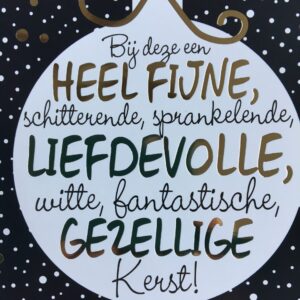 Bij deze een
HEEL FIJNE,
schitterende, sprankelende,
LIEFDEVOLLE,
witte, fantastische,
GEZELLIGE
Kerst!